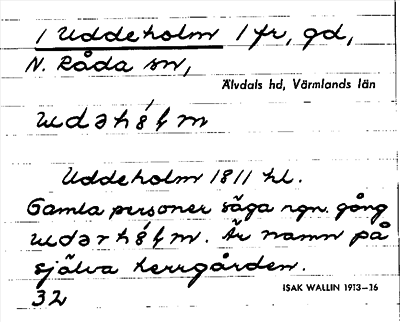 1 Uddeholm 1 fr, gd,
N. Råda sn,
Älvdals hd, Värmlands län
Uddeholm 1811 kl.
Gamla personer säga ngn. gång
Är namn på
själva herrgården.
32
ISAK WALLIN 1913–16